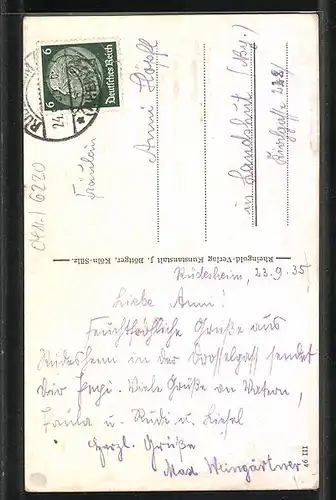 6
Deutsches Reich
6
24.
6220
Fräulein
Anni Höpfl
in Landshut (Bay.)
Rheingold-Verlag Kunstanstalt J. Böttger, Köln-Sülz.
Rüdesheim, 23.9.35
Liebe Anni!
Feuchtfröhliche Grüße aus
Rüdesheim in der Drosselgass sendet
Dir Pepi. Viele Grüße an Vatern,
Paula u. Rudi u. Liesel
Herzl. Grüße
Max Weingärtner
46 III